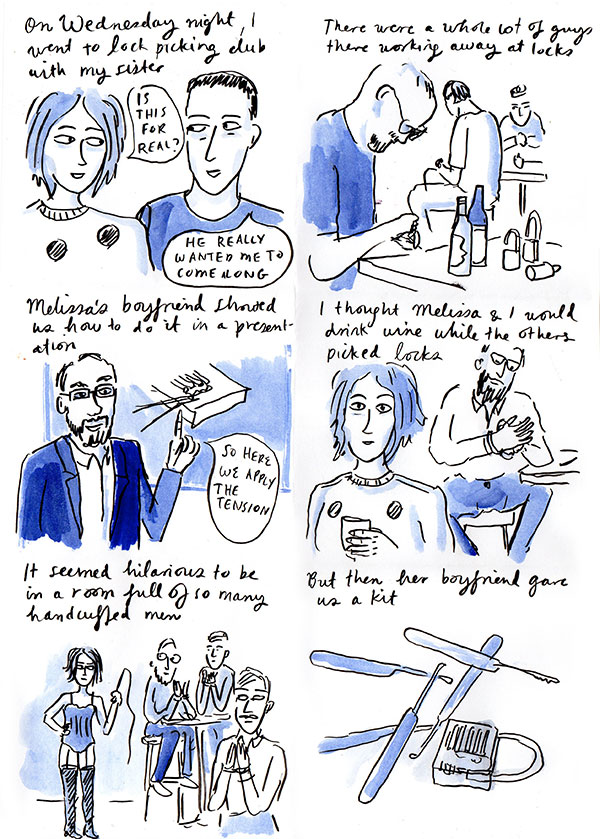 On Wednesday night, I
went to lock picking club
with my sister
IS
THIS
FOR
REAL?
HE REALLY
WANTED ME TO
COME ALONG
There were a whole lot of guys
there working away at locks
Melissa's boyfriend showed
us how to do it in a present-
ation
SO HERE
WE APPLY
THE
TENSION
I thought Melissa & I would
drink wine while the others
picked locks
It seemed hilarious to be
in a room full of so many
handcuffed men
But then her boyfriend gave
us a kit